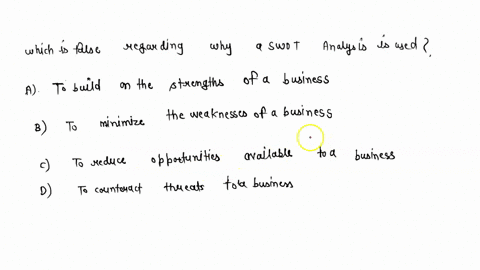 which is false regarding why a SWOT Analysis is used?
A). To build on the strengths of a business
B) To minimize the weaknesses of a business
C) To reduce opportunities available to a business
D) To counteract threats to a business